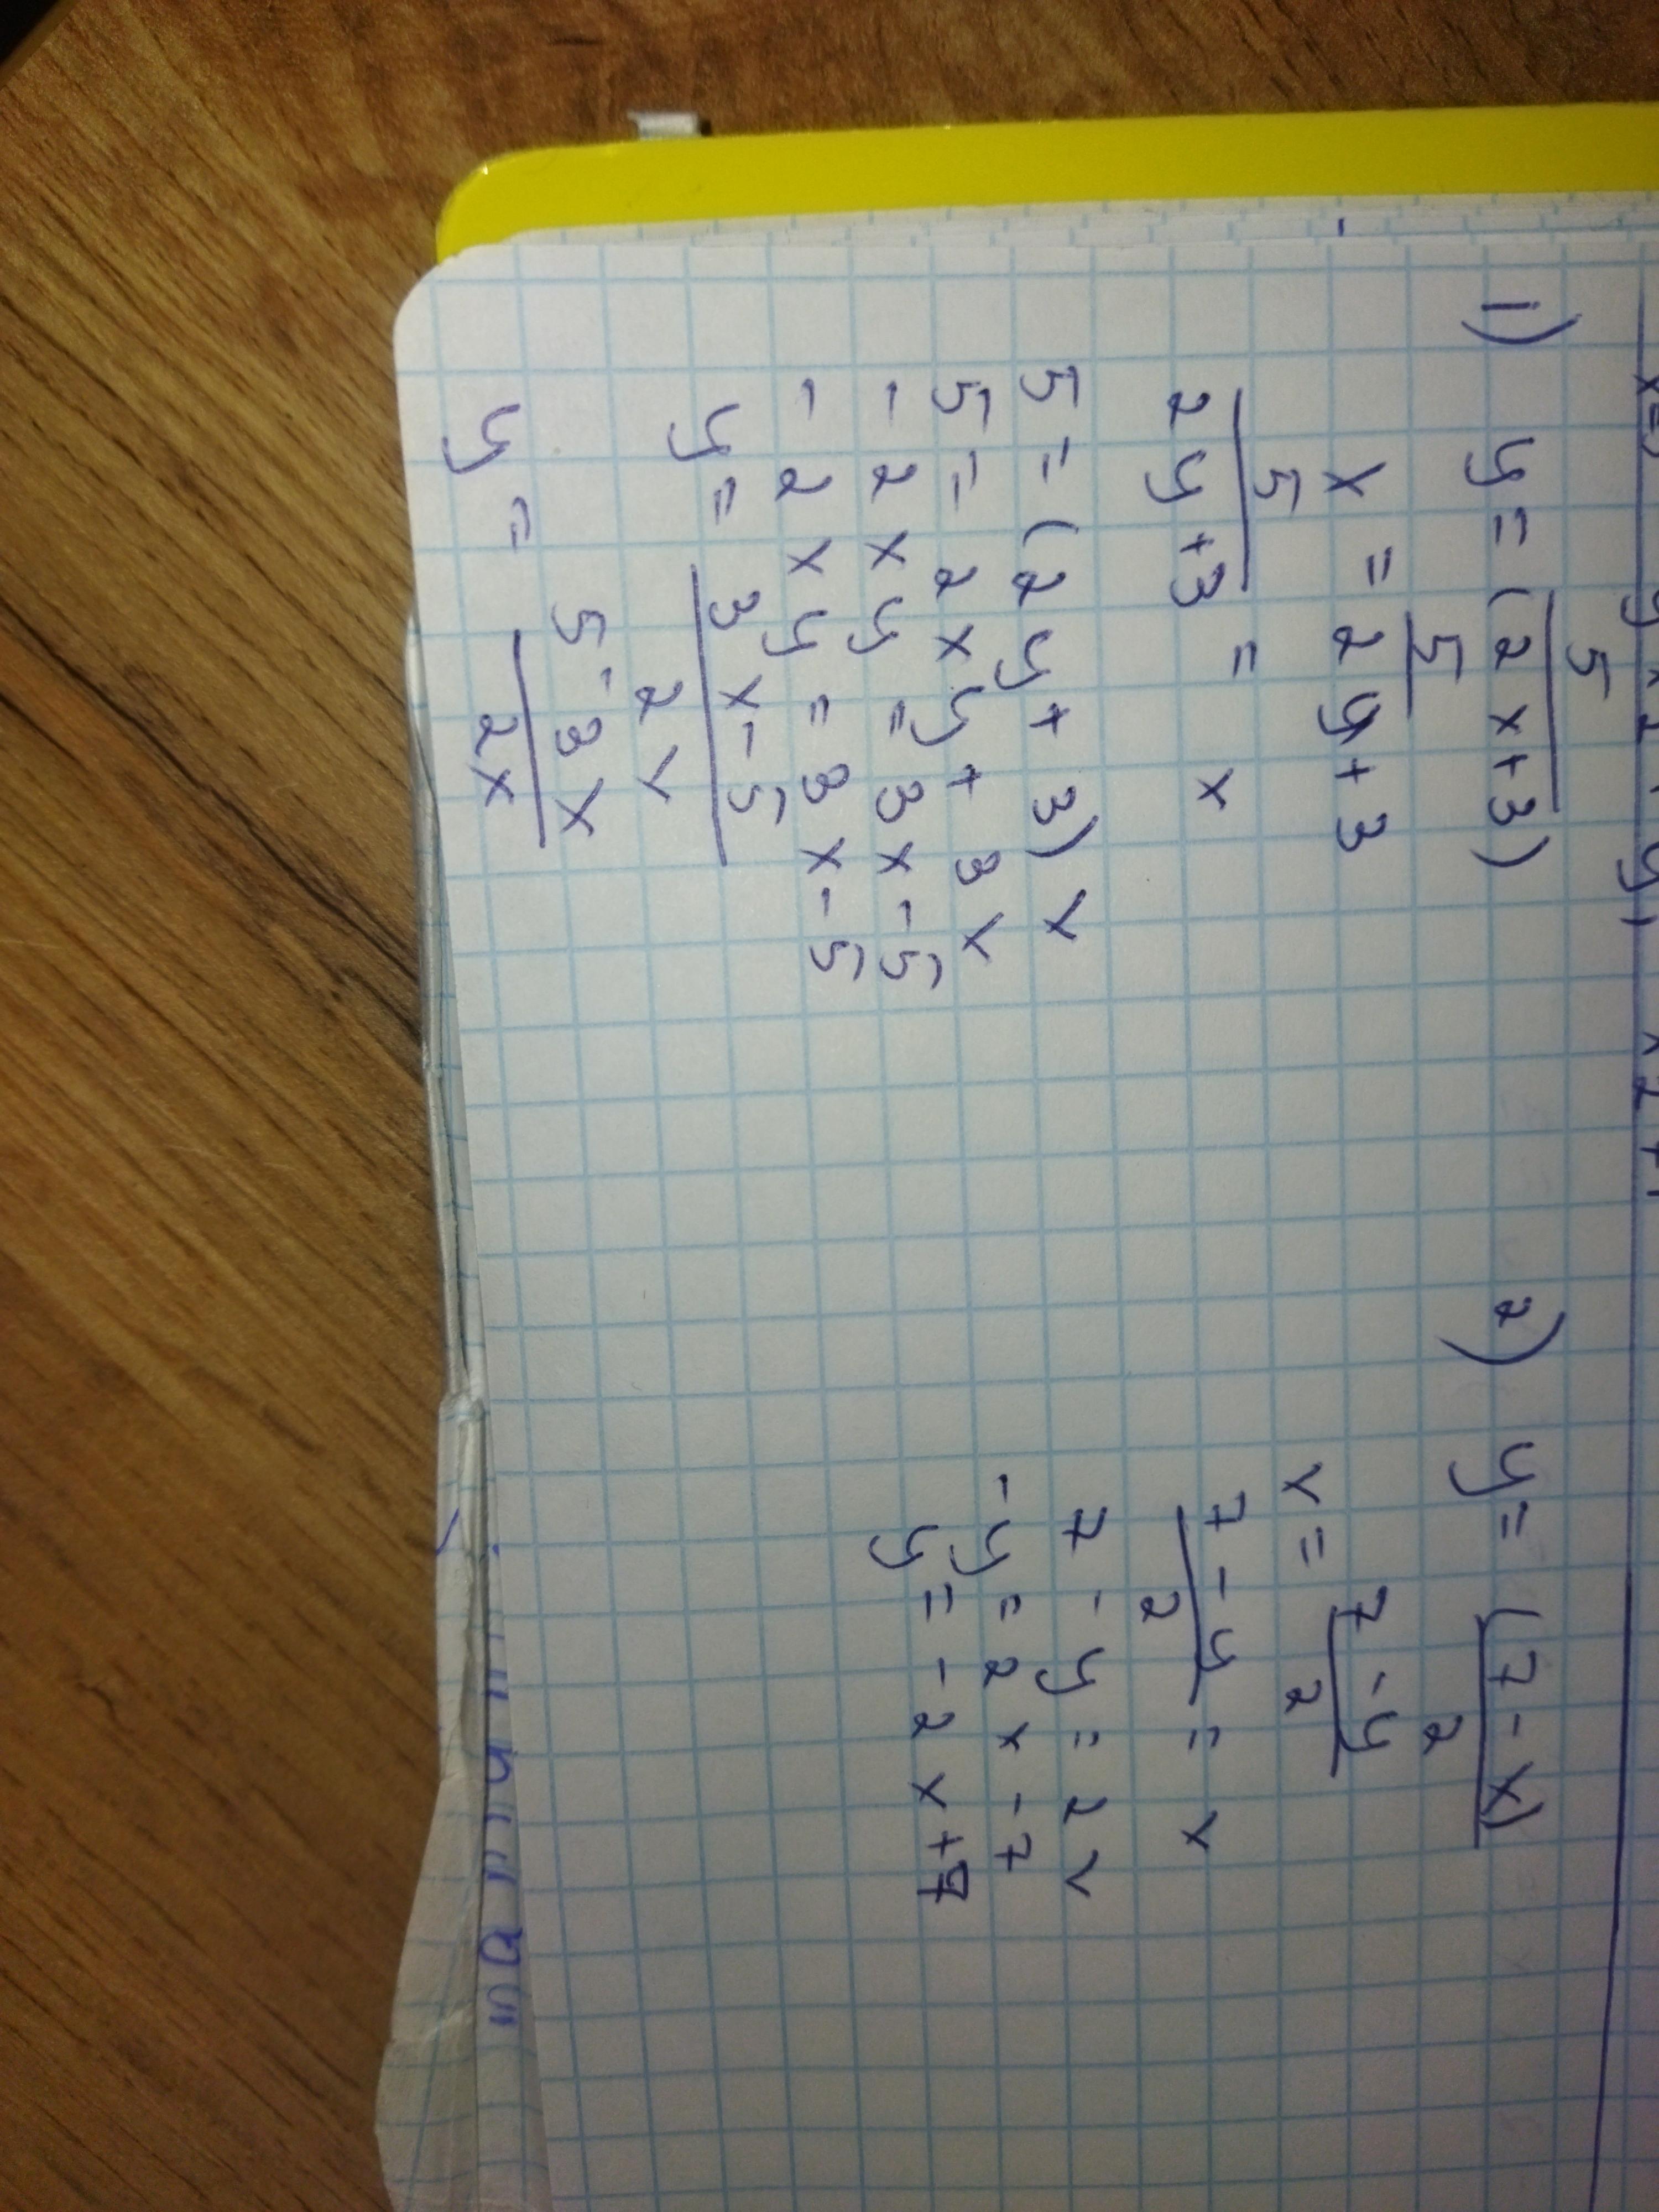 1) y = 5/(2x+3)
x = 5/2y+3
5/2y+3 = x
5 = (2y+3)x
5 = 2xy + 3x
-2xy = 3x-5
-2xy = 3x-5
y = 3x-5/2x
y = 5-3x/2x
2) y = (7-x)/2
x = 7-y/2
7-y/2 = x
7-y = 2x
-y = 2x-7
y = -2x+7